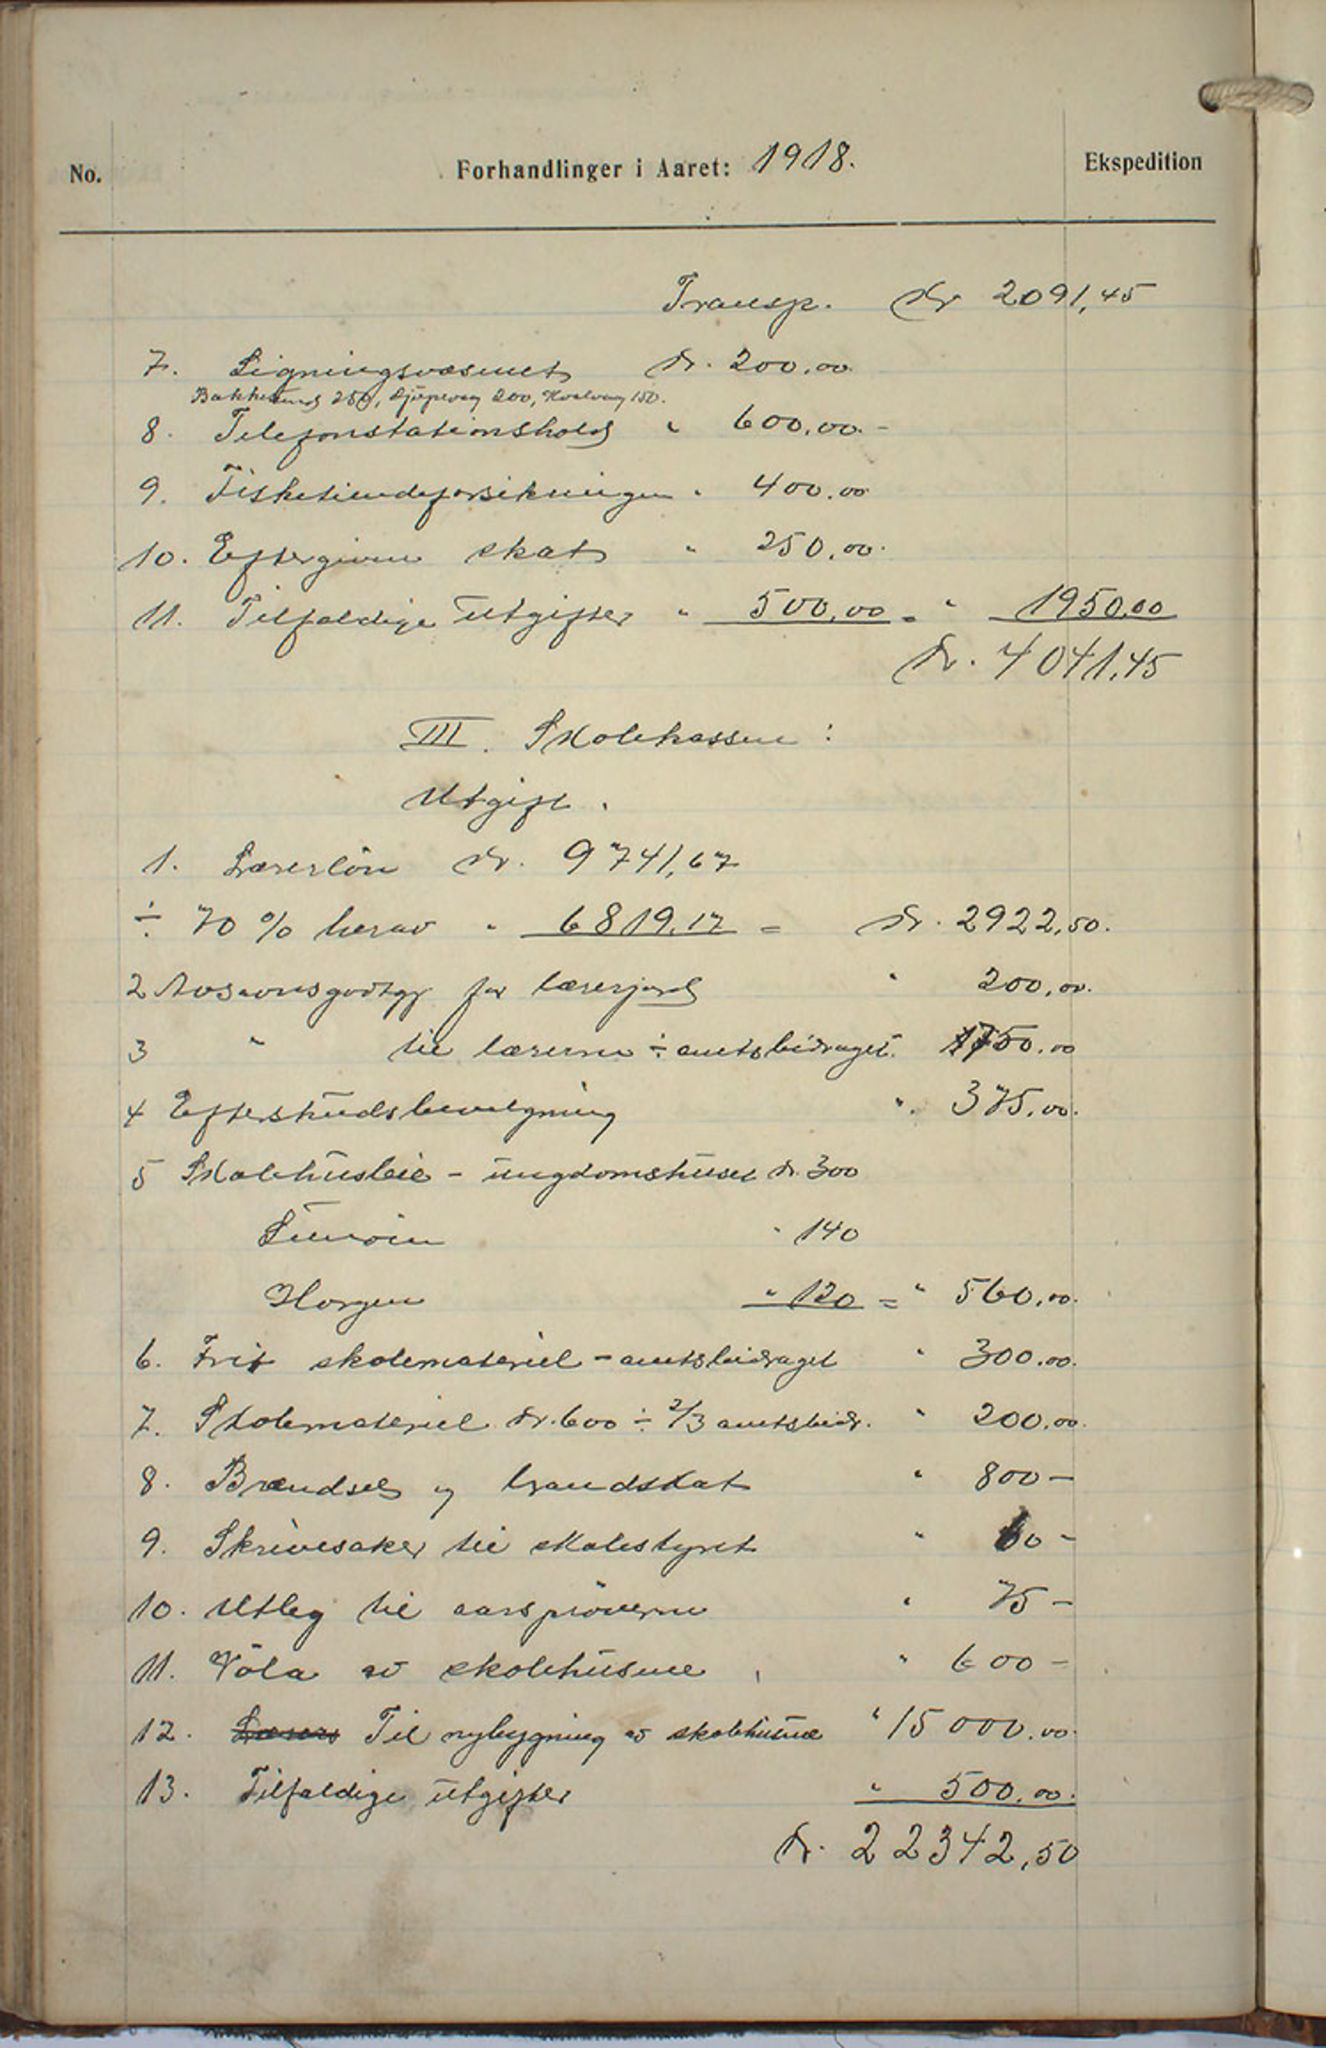 No. Forhandlinger i Aaret: 1918. Ekspedition
Transp. Kr 2091,45
7. Ligningsvæsenet Kr. 200.00
Bakkesund 250, Djupevaag 200, Kvalvaag 150.
8. Telefonstationshold " 600.00.-
9. Fisketiendeforsikringen " 400.00
10. Eftergiven skat " 250.00.
11. Tilfældige utgifter " 500.00 = " 1950.00
Kr. 4041.45
III. Skolekassen:
Utgift.
1. Lærerløn Kr. 9741,67
÷ 70 % herav " 6819.17 = Kr. 2922,50.
2 Avsavnsgodtgj for lærerjord " 200,00.
3 " til lærerne ÷ amtsbidraget. 750.00
4 Efterskudsbevilgning " 375,00.
5 Skolehusleie - ungdomshuset Kr. 300
" 140
Horgen " 120 = " 560,00.
6. Frit skolemateriel - amtsbidraget " 300.00.
7. Skolemateriel Kr. 600 ÷ 2/3 amtsbidr. " 200.00.
8. Brændsel og brandskat " 800 -
9. Skrivesaker til skolestyret " 60 -
10. Utlæg til aarsprøverne " 75 -
11. Vøla av skolehusene " 600 -
12. Til nybygning av skolehusene " 15000.00.
13. Tilfældige utgifter " 500.00.
Kr. 22342,50